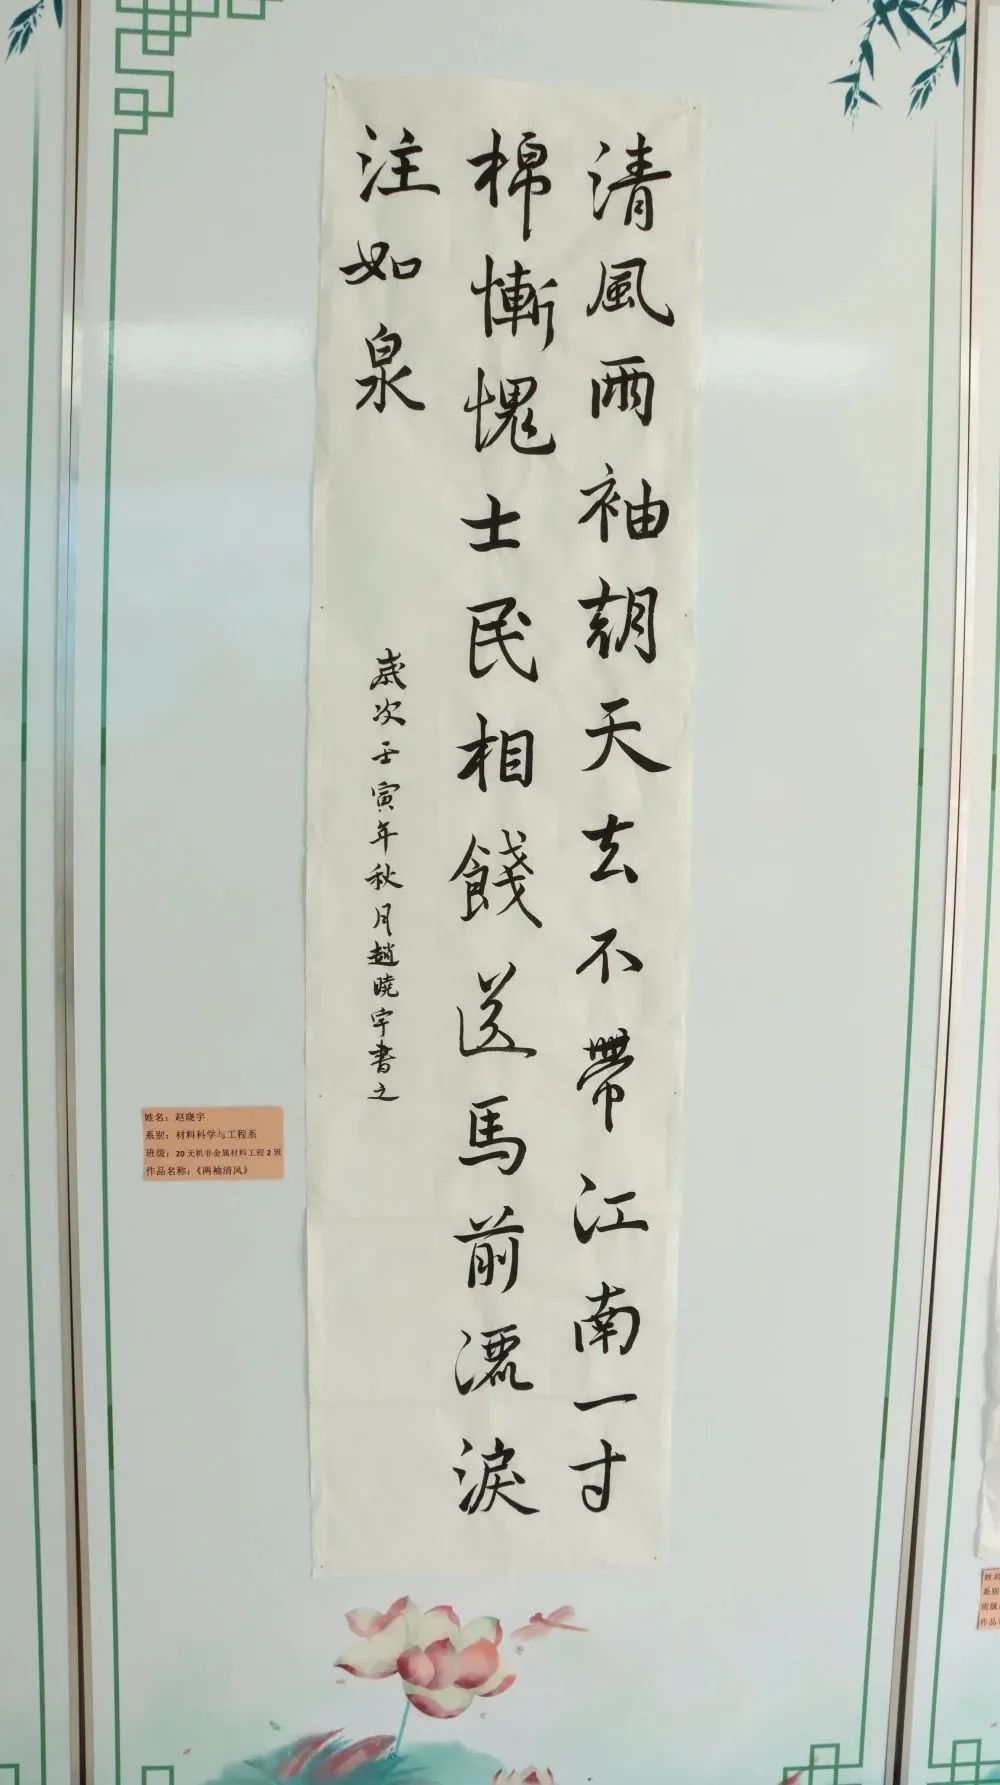 清風兩袖朝天去不帶江南一寸
棉慚愧士民相餞送馬前灑淚
注如泉
歲次壬寅年秋月趙曉宇書之
姓名：赵晓宇
系别：材料科学与工程系
班级：20 无机非金属材料工程 2 班
作品名称：《两袖清风》
姓名
系别
班级
作品